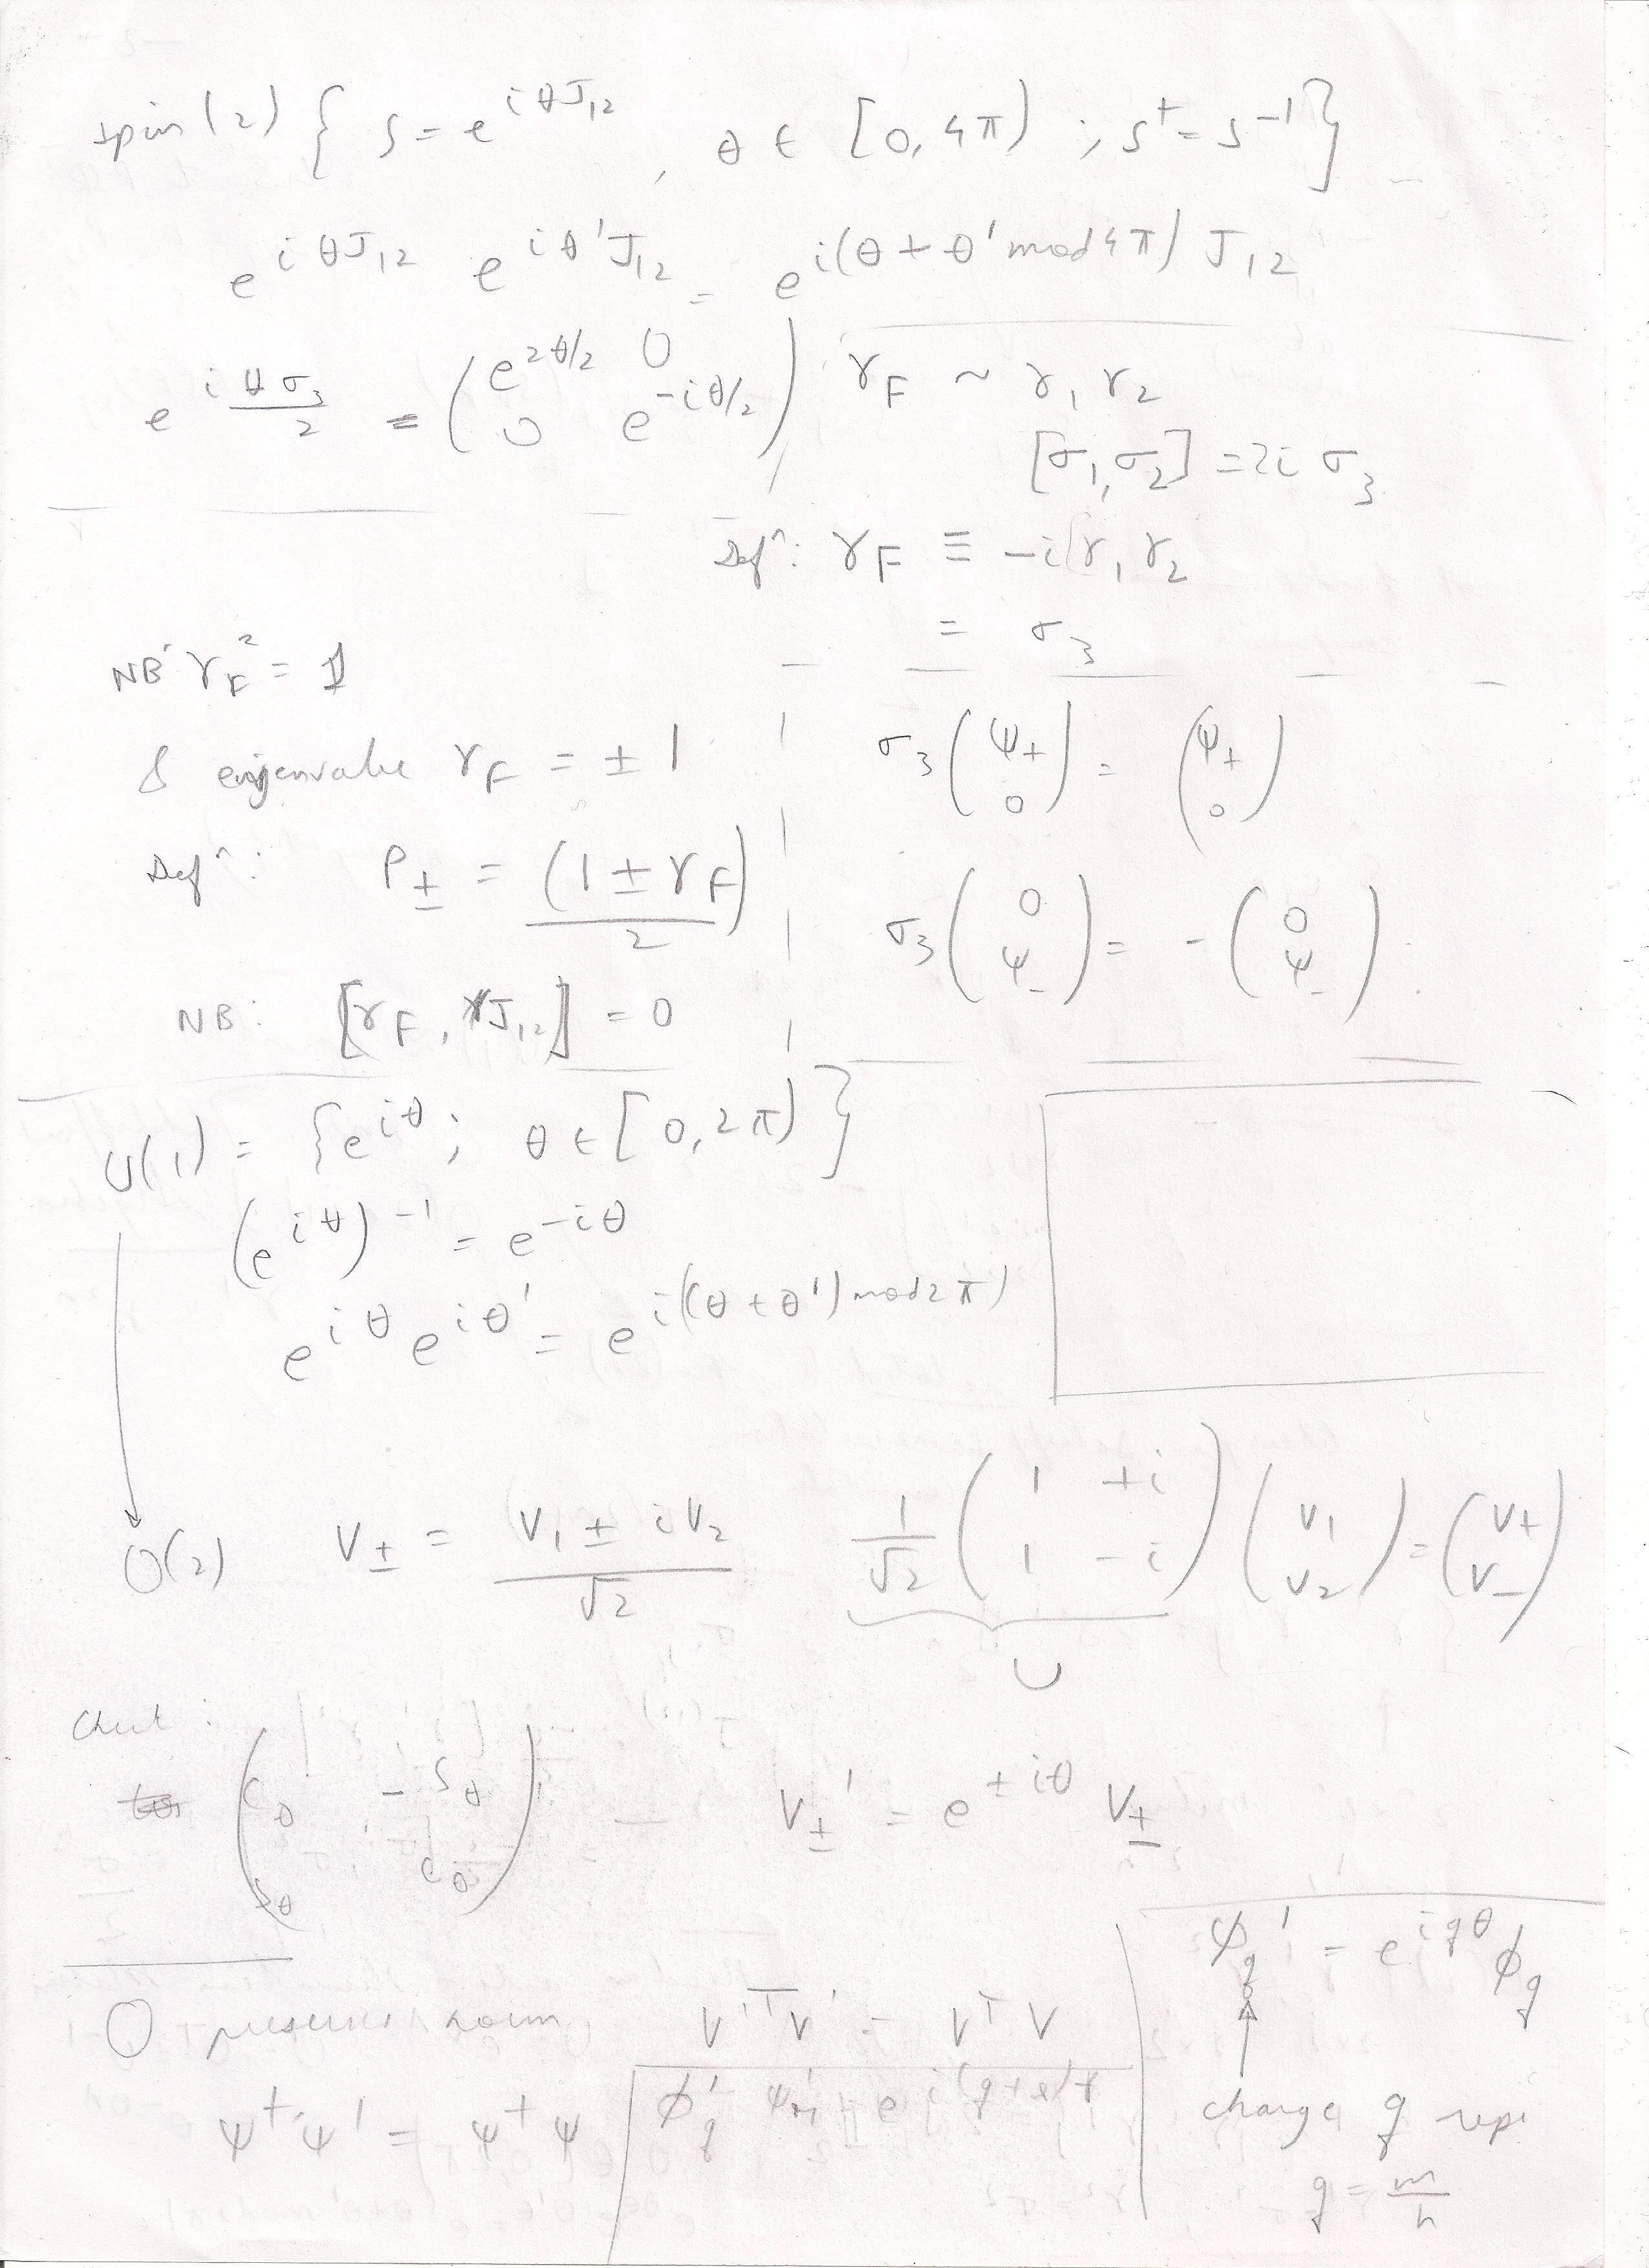 spin(2) { S = e^{iθJ_{12}}, θ ∈ [0, 4π) ; S^† = S^{-1} }
e^{iθJ_{12}} e^{iθ'J_{12}} = e^{i(θ + θ' mod 4π) J_{12}}
e^{i θσ_3/2} = ( e^{2θ/2} 0
0 e^{-iθ/2} )
γ_F ~ γ_1 γ_2
[σ_1, σ_2] = 2i σ_3
Defⁿ: γ_F ≡ -i γ_1 γ_2
= σ_3
NB γ_F^2 = 1
& eigenvalue γ_F = ± 1
Defⁿ: P_± = (1 ± γ_F)/2
NB: [γ_F, J_{12}] = 0
σ_3 ( ψ_+
0 ) = ( ψ_+
0 )
σ_3 ( 0
ψ_- ) = - ( 0
ψ_- )
U(1) = { e^{iθ} ; θ ∈ [0, 2π) }
(e^{iθ})^{-1} = e^{-iθ}
e^{iθ} e^{iθ'} = e^{i((θ + θ') mod 2π)}
O(2) V_± = (V_1 ± i V_2)/√2
1/√2 ( 1 +i
1 -i ) ( V_1
V_2 ) = ( V_+
V_- )
U
Check :
( c_θ -s_θ
s_θ c_θ ) — V_±' = e^{±iθ} V_±
O preserves norm V'^T V' = V^T V
ψ^†' ψ' = ψ^† ψ
φ_q' = e^{iqθ} φ_q
charge q rep:
q = m/n